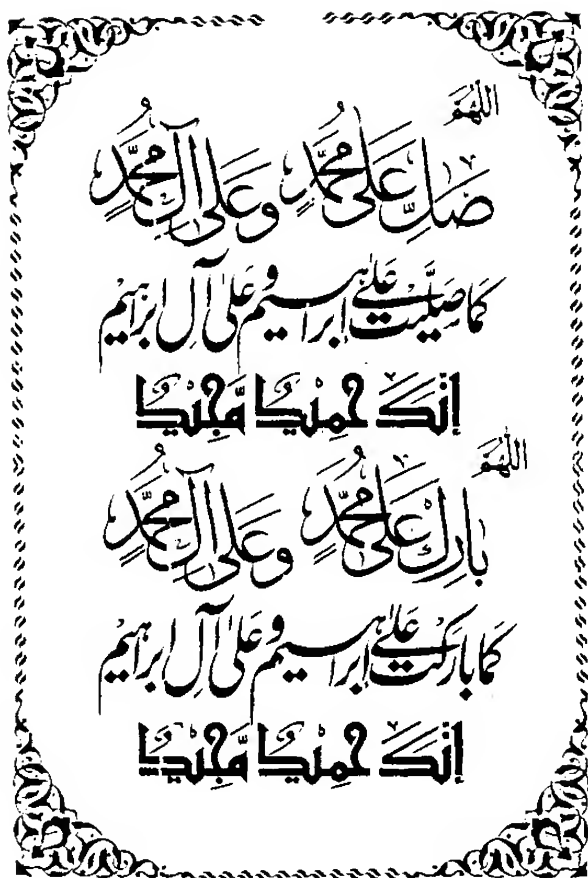 اللهم
صَلِّ عَلَى مُحَمَّدٍ وَعَلَى آلِ مُحَمَّدٍ
كما صَلَّيْتَ عَلٰى إبراهيم وعَلٰى آلِ ابراهيم
إنّكَ حَمِيْدٌ مَّجِيْدٌ
اللهم
بارِكْ عَلَى مُحَمَّدٍ وَعَلَى آلِ مُحَمَّدٍ
كما باركتَ عَلٰى إبراهيم وعَلٰى آلِ ابراهيم
إنّكَ حَمِيْدٌ مَّجِيْدٌ